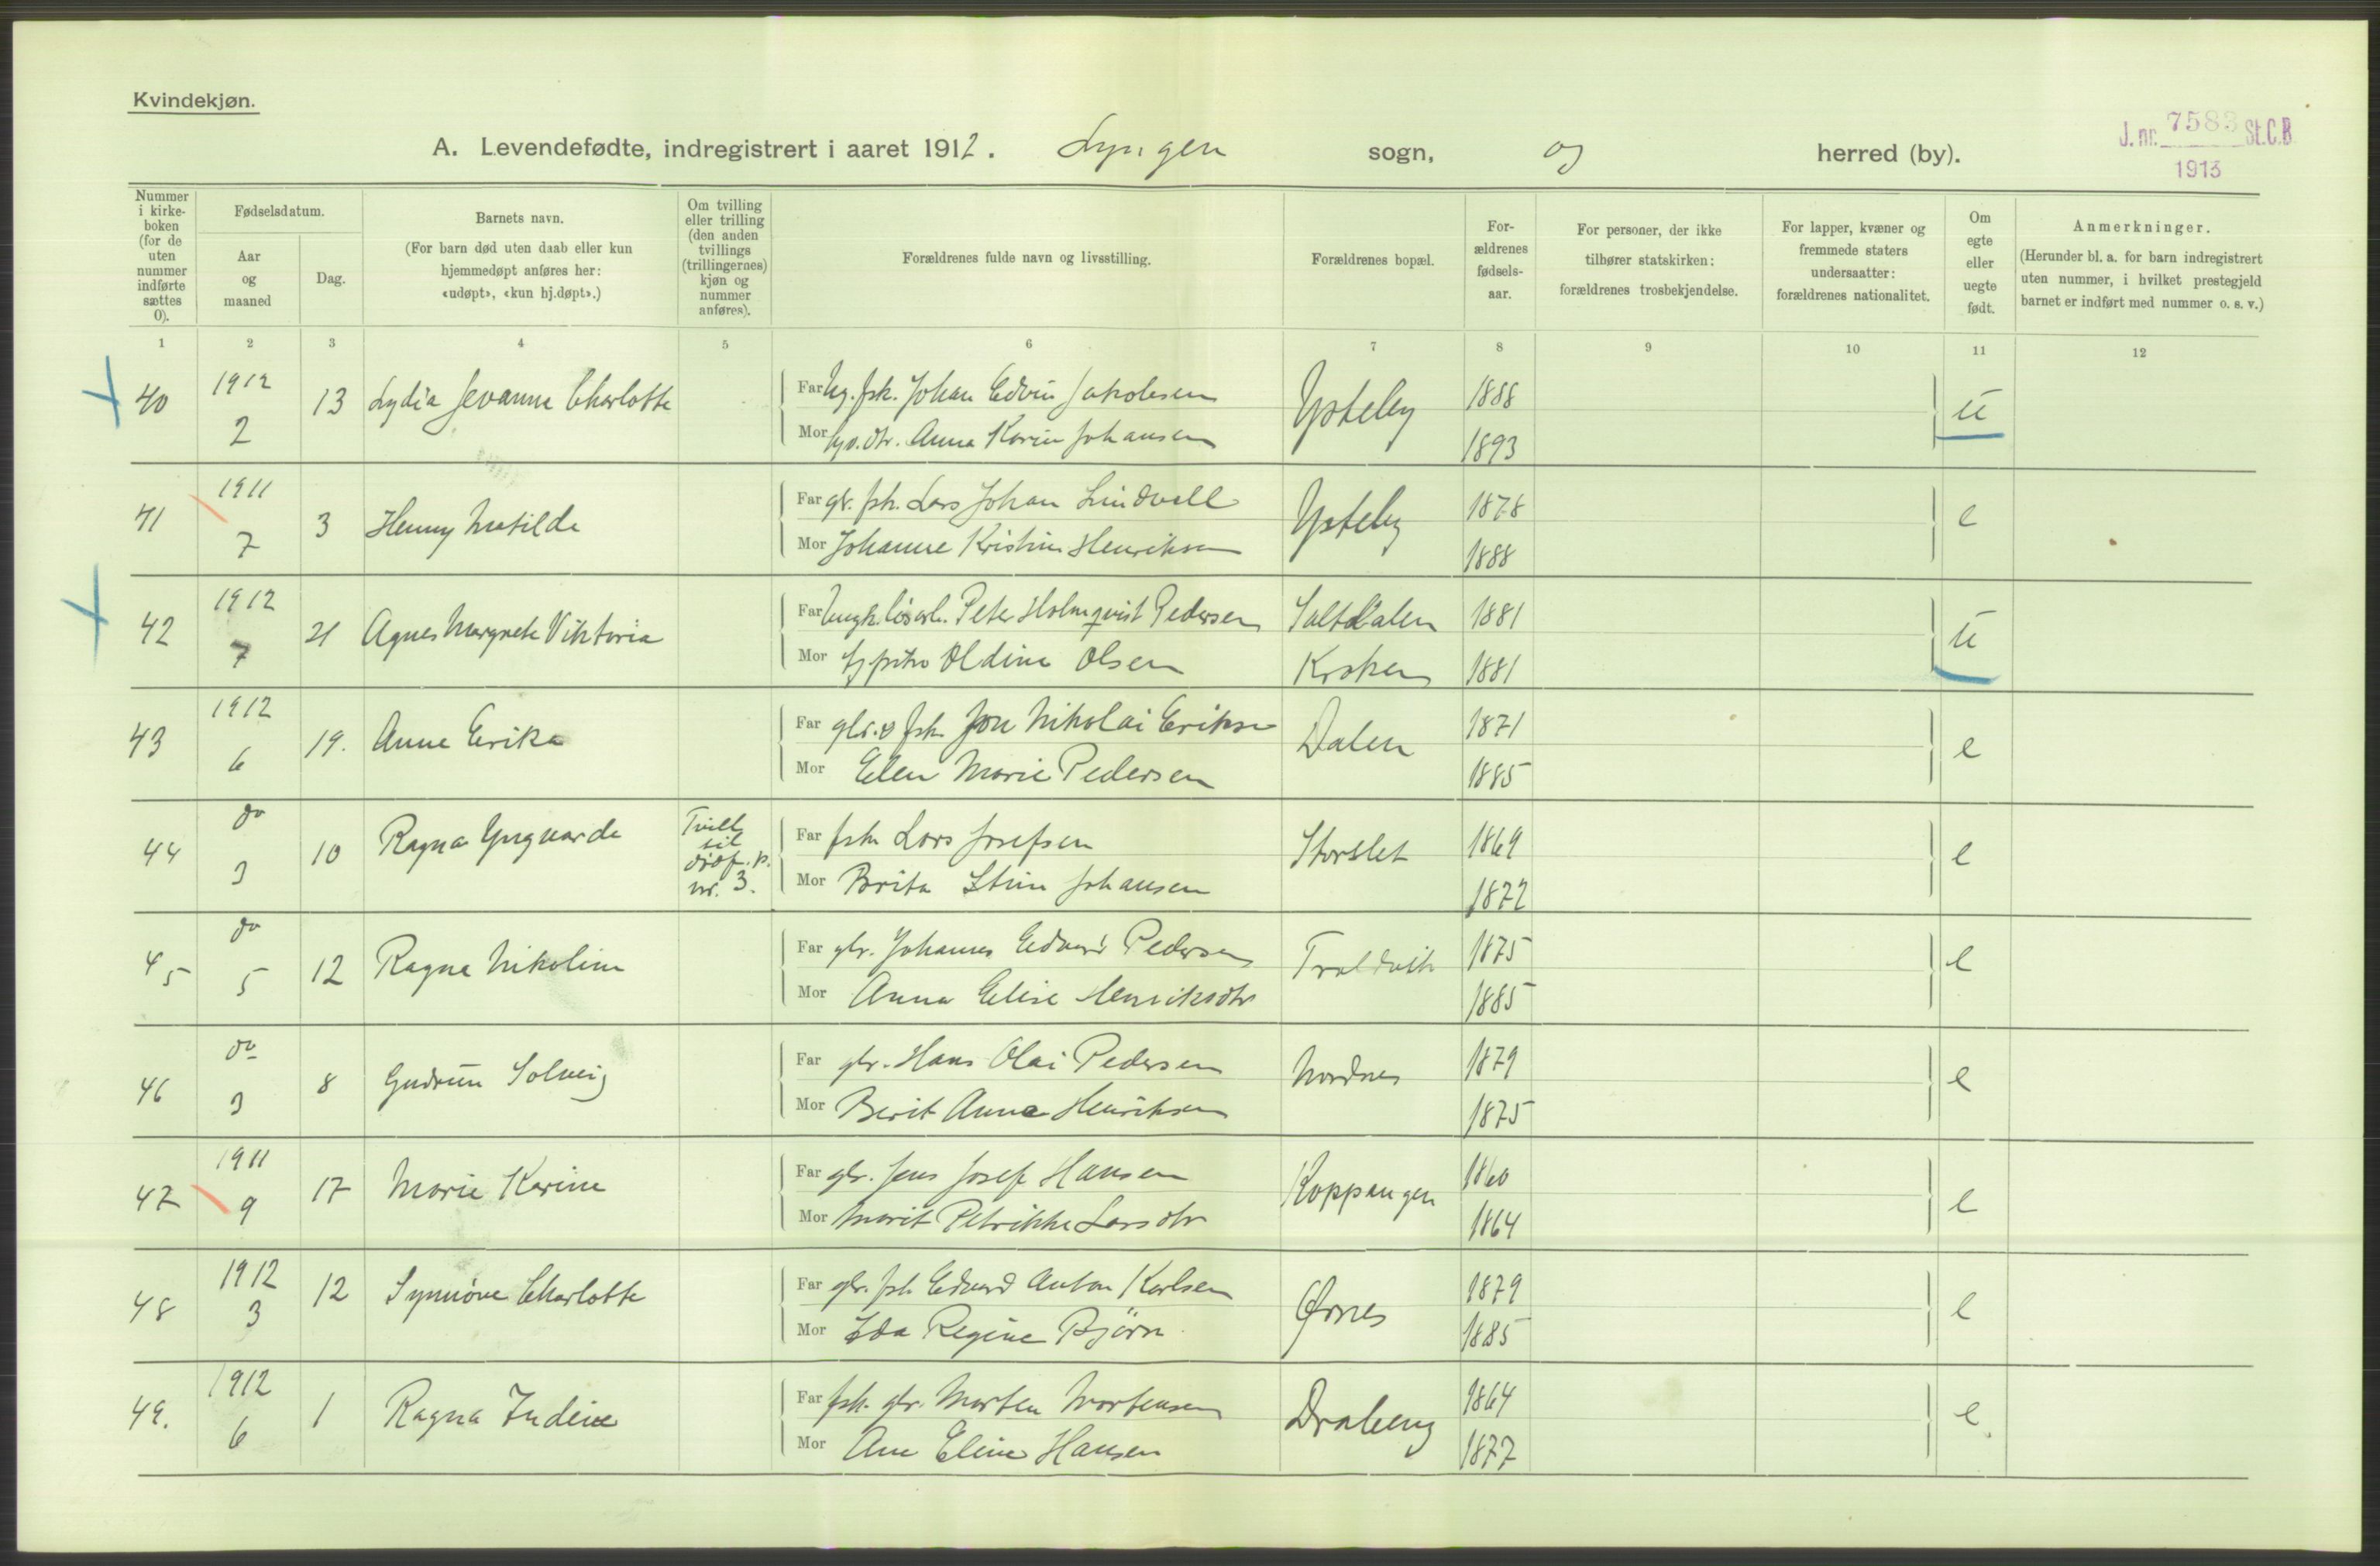 Kvindekjøn.
A. Levendefødte, indregistrert i aaret 1912. Lyngen sogn, og herred (by).
J. nr. 7583 St.C.B.
1913
Nummer i kirkeboken (for de uten nummer indførte sættes 0).
Fødselsdatum.
Aar og maaned
Dag.
Barnets navn.
(For barn død uten daab eller kun hjemmedøpt anføres her: «udøpt», «kun hj.døpt».)
Om tvilling eller trilling (den anden tvillings (trillingernes) kjøn og nummer anføres).
Forældrenes fulde navn og livsstilling.
Forældrenes bopæl.
Forældrenes fødselsaar.
For personer, der ikke tilhører statskirken: forældrenes trosbekjendelse.
For lapper, kvæner og fremmede staters undersaatter: forældrenes nationalitet.
Om egte eller uegte født.
Anmerkninger.
(Herunder bl. a. for barn indregistrert uten nummer, i hvilket prestegjeld barnet er indført med nummer o. s. v.)
1 2 3 4 5 6 7 8 9 10 11 12
40 1912 2 13 Lydia Jevanna Charlotte
Far Ug. fsk. Johan Edvin Jakobsen Ysteby 1888 u
Mor Anna Karin Johansen 1893
41 1911 7 3 Henny Matilde
Far gbr. fsk. Lars Johan Lindvall Ysteby 1878 e
Mor Johanne Kristine Henriksen 1888
42 1912 7 21 Agnes Margrete Viktoria
Far Ungk. løsarb. Peter Holmqvist Pedersen Saltdalen 1881 u
Mor Oldine Olsen Kroken 1881
43 1912 6 19. Anne Erika
Far gbr. o fsk. Jon Nikolai Eriksen Dalen 1871 e
Mor Elen Marie Pedersen 1885
44 do 3 10 Ragna Yngvarda Tvill. til dødf. p. nr. 3.
Far fsk Lars Josefsen Storslet 1869 e
Mor Brita Stine Johansen 1872
45 do 5 12 Ragna Nikoline
Far gbr. Johannes Edvard Pedersen Troldvik 1875 e
Mor Anna Elise Henriksdtr 1885
46 do 3 8 Gudrun Solveig
Far gbr. Hans Olai Pedersen Nordnes 1879 e
Mor Berit Anna Henriksen 1875
47 1911 9 17 Marie Karine
Far gbr. Jens Josef Hansen Koppangen 1860 e
Mor Marit Petrikke Larsdtr 1864
48 1912 3 12 Synnöve Charlotte
Far gbr. fsk Edvard Anton Karlsen Ørnes 1879 e
Mor Ida Regine Björn 1885
49. 1912 6 1 Ragna Indine
Far fsk. gbr. Morten Mortensen Drabeng 1864 e
Mor Ane Eline Hansen 1877